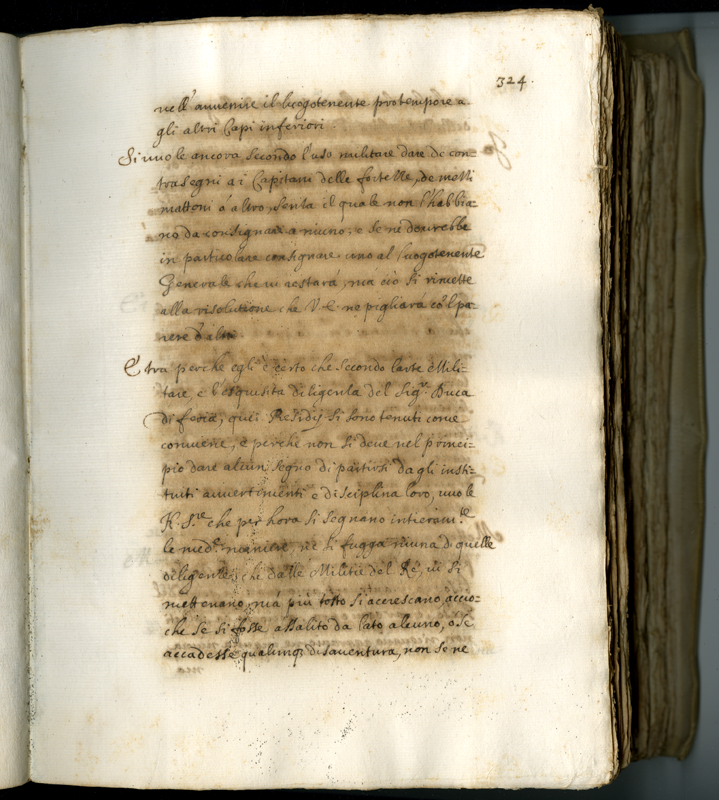 324.
nell' auuenire il luogotenente protempore a
gli altri Capi inferiori.
Si uuole ancora secondo l'uso militare dare de con-
trasegni a i Capitani delle fortezze, de mezzi
mattoni ò altro, senza il quale non l'habbia-
no da consignare a niuno, e se ne dourebbe
in particolare consignare uno al luogotenente
Generale che ui restarà, mà ciò si rimette
alla risolutione che V. E. ne pigliarà co'l pa-
rere d'altri.
E tra perche egl' è certo che secondo l'arte Mili-
tare, e l'esquisita diligenza del Sigr. Duca
di feria, quei Residij si sono tenuti come
conuiene, e perche non si deue nel princi-
pio dare alcun segno di partirsi da gli insti-
tuiti auuertimenti e disciplina loro, uuole
N. Sre. che per hora si segnano intieramte
le medme maniere, ne si fugga niuna di quelle
diligenze, che dalle Militie del Rè, ui si
metteuano, mà più tosto si accrescano accio-
che se si fosse assalito da lato alcuno, o se
accadesse qualunq; disauentura, non se ne